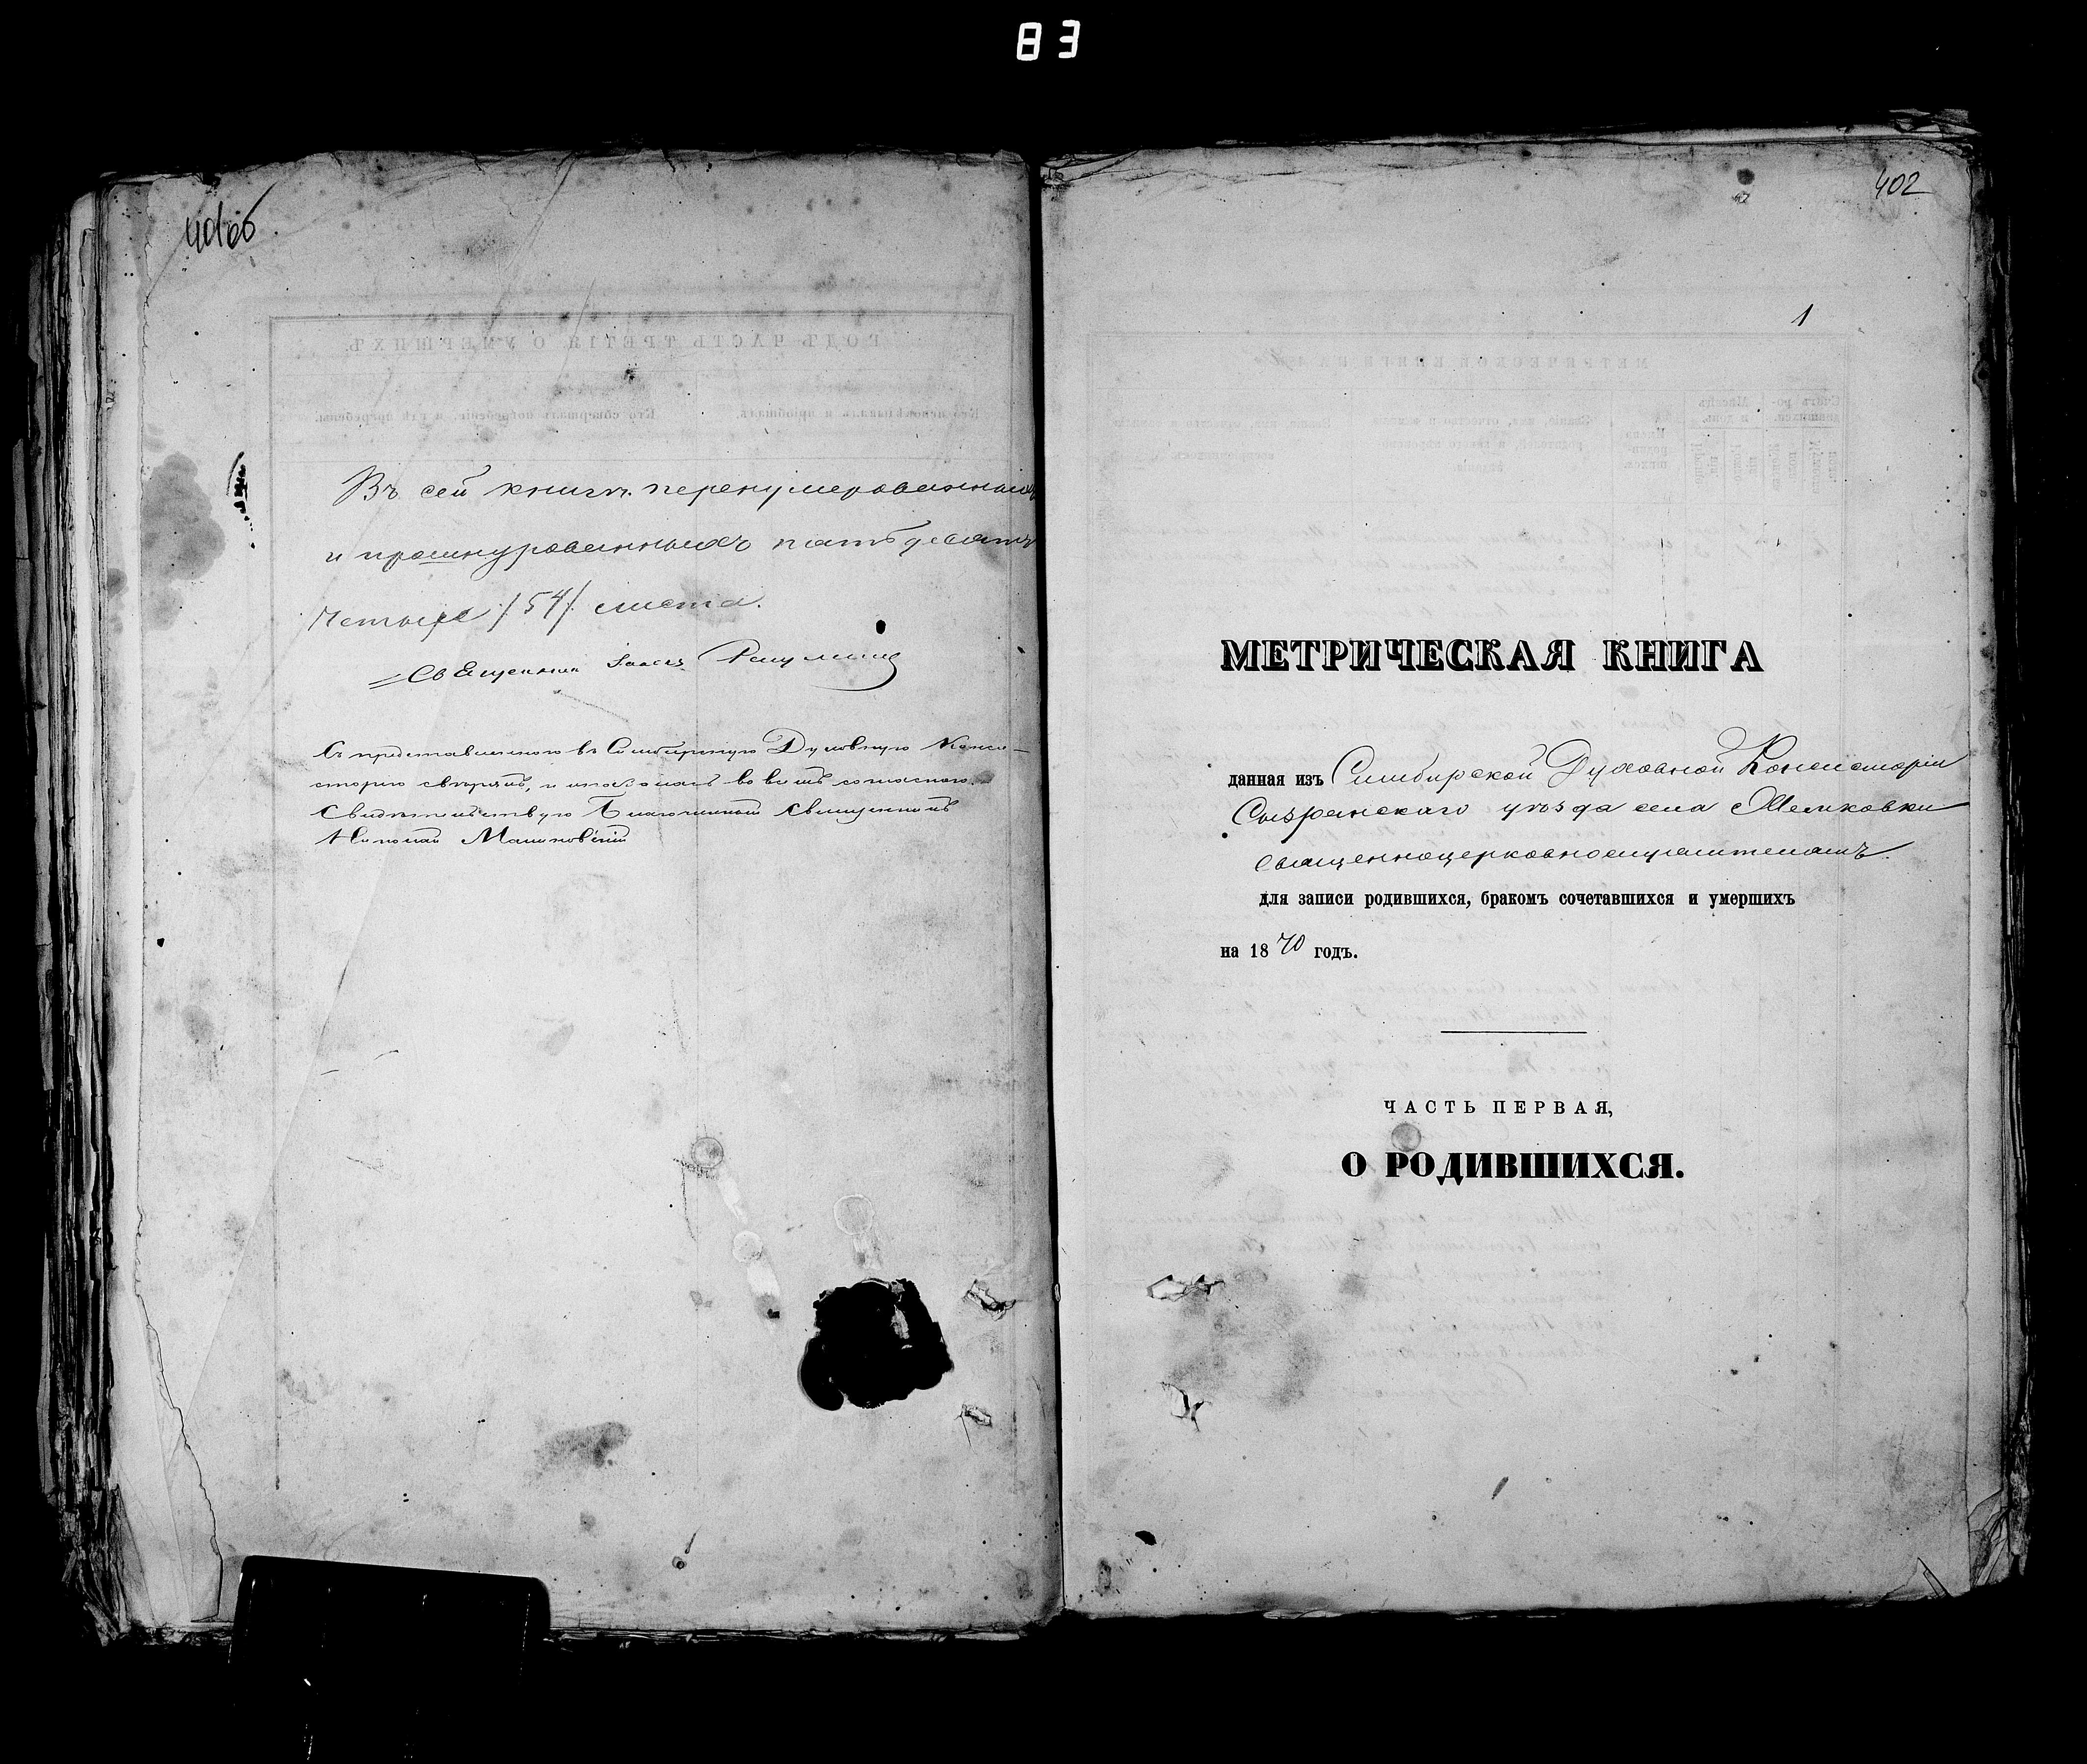 83
401об
Въ сей книгѣ перенумерованныхъ
и прошнурованныхъ пятьдесятъ
четыре /54/ листа.
Священникъ
Съ представленною въ Симбирскую Духовную Конси-
сторію свѣрялъ, и оказалась во всемъ согласною.
Свидѣтельствую Благочинный Священникъ
Николай Малиновскій
402
1
МЕТРИЧЕСКАЯ КНИГА
данная изъ Симбирской Духовной Консисторіи
Сызранскаго уѣзда села
священноцерковнослужителямъ.
для записи родившихся, бракомъ сочетавшихся и умершихъ
на 1870 годъ.
ЧАСТЬ ПЕРВАЯ,
О РОДИВШИХСЯ.